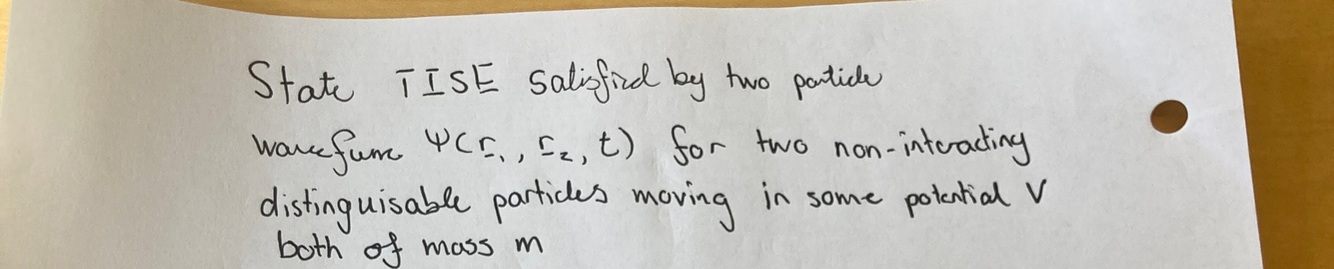 State TISE satisfied by two particle
wavefunc Ψ(r₁, r₂, t) for two non-interacting
distinguisable particles moving in some potential V
both of mass m